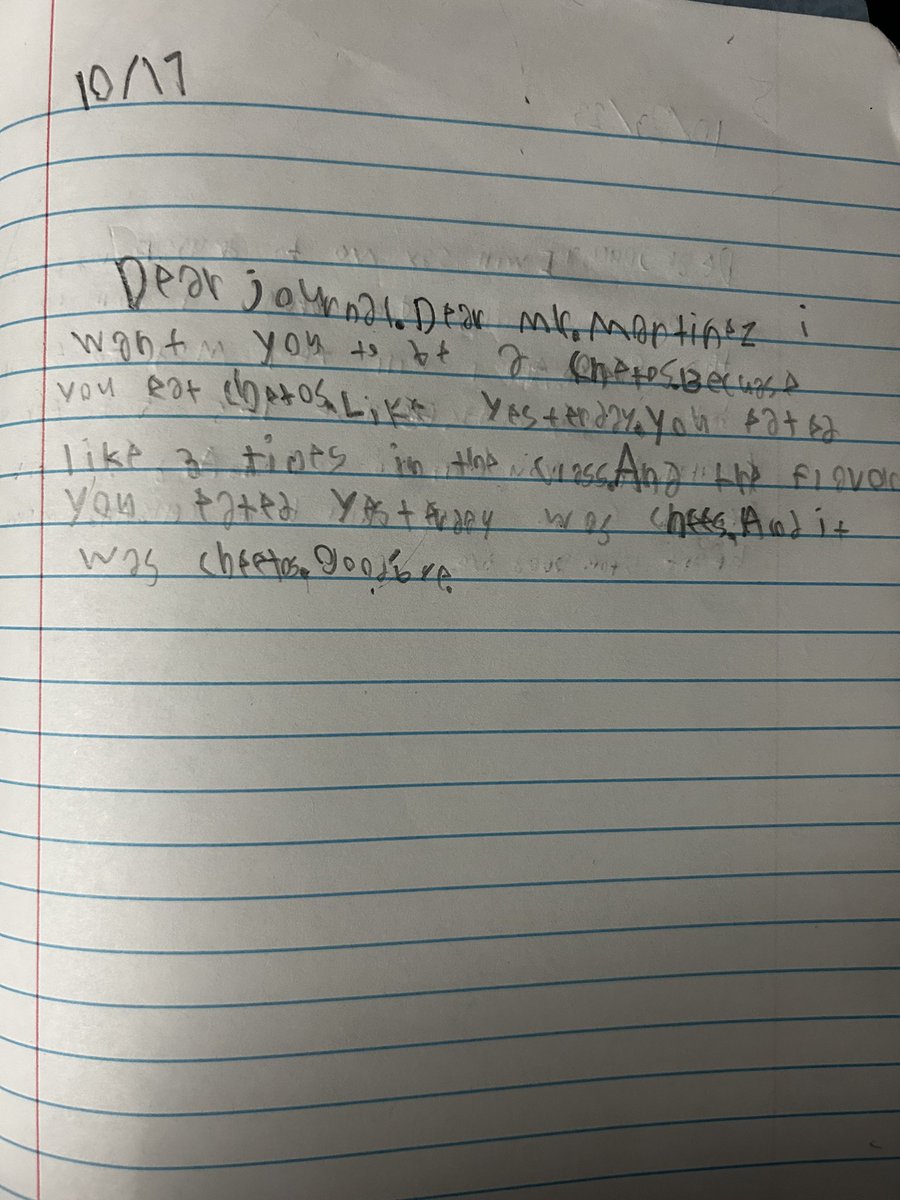 10/17
Dear journal. Dear mr. Martinez i
want you to be a Cheetos. Becuase
you eat cheetos. Like yesterday. you eated
like 3 times in the class. And the flavor
you eated yesterday was chees. And it
was cheetos. goodbye.